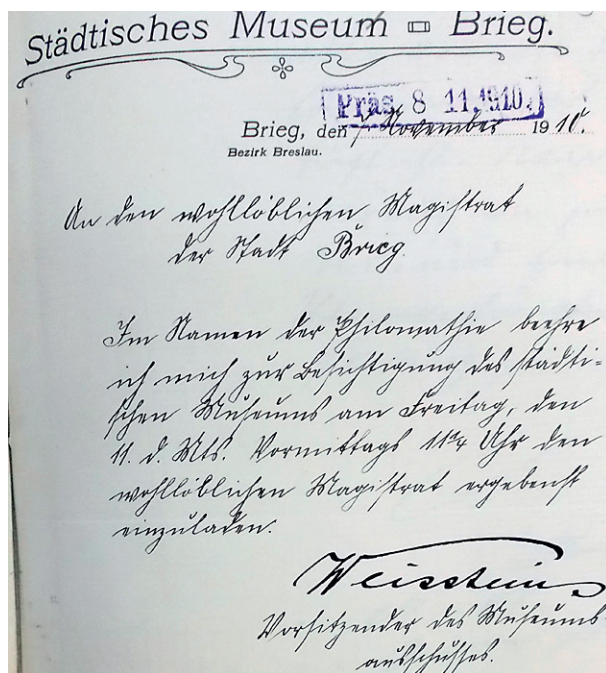 Städtisches Museum Brieg.
Präs. 8 11.1910.
Brieg, den 7. November 1910.
Bezirk Breslau.
An den wohllöblichen Magistrat
der Stadt Brieg.
Im Namen der Philomathie beehre
ich mich zur Besichtigung des städti-
schen Museums am Freitag, den
11. d. Mts. Vormittags Uhr den
wohllöblichen Magistrat ergebenst
einzuladen.
Weisstein
Vorsitzender des Museums-
ausschusses.